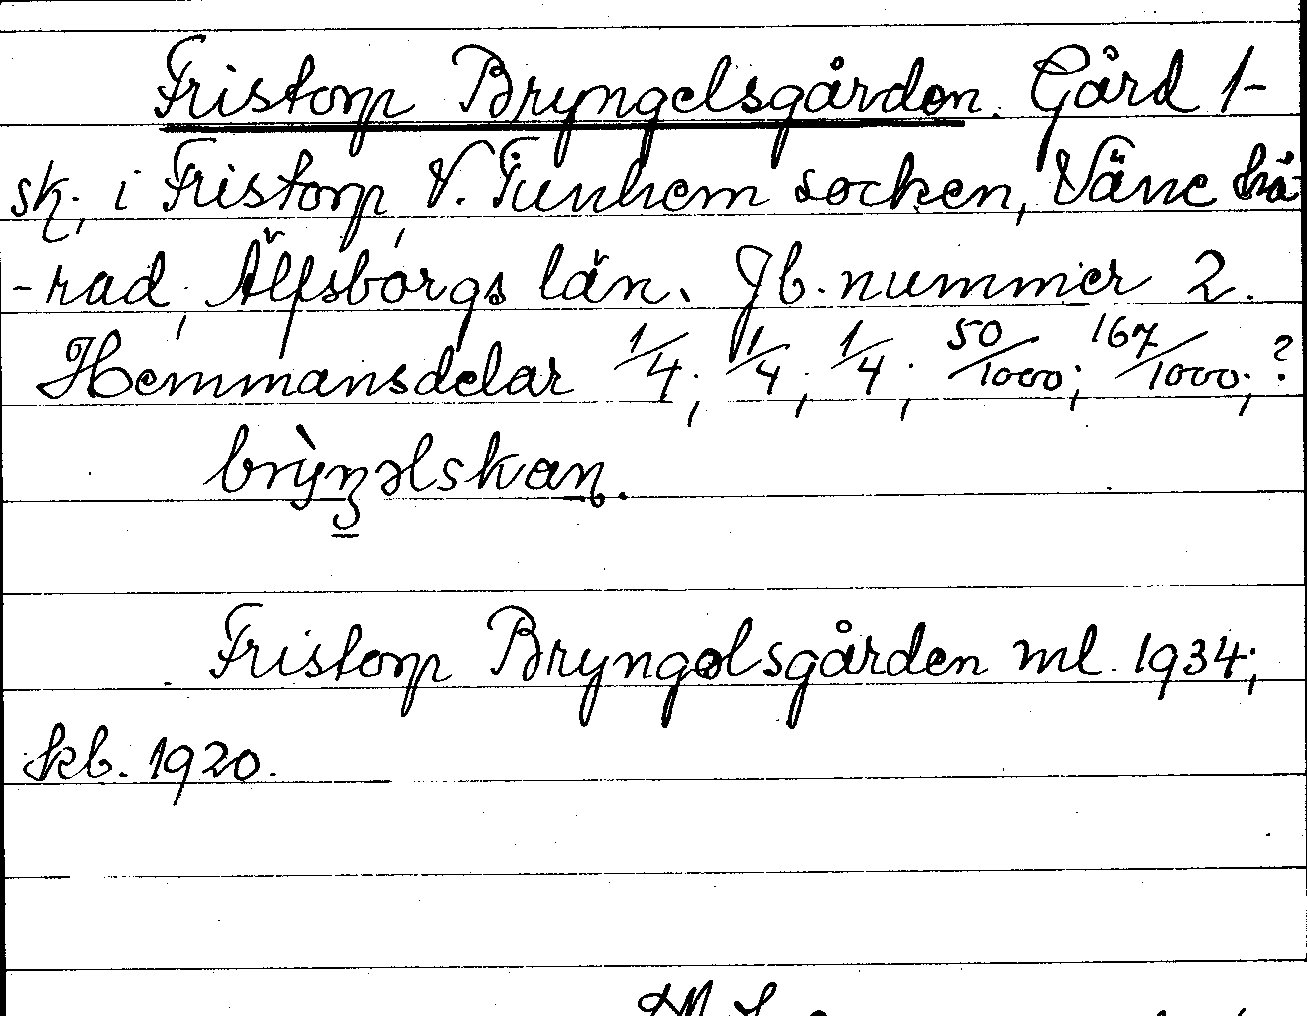 Fristorp Bryngelsgården. Gård 1-
sk., i Fristorp, V. Tunhem socken, Väne hä-
-rad, Älfsborgs län. Jb. nummer 2.
Hemmansdelar 1/4; 1/4; 1/4; 50/1000; 167/1000; ?
brỳŋəlskan.
Fristorp Bryngelsgården ml. 1934;
skb. 1920.